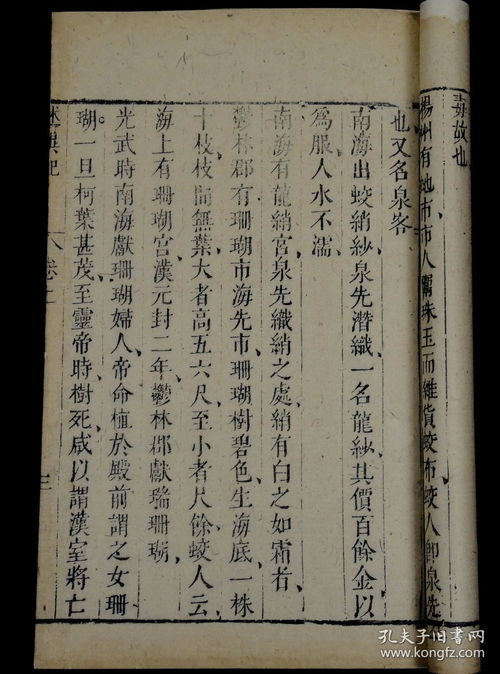 毒故也
楊州有虵市市人鬻珠玉而雜貨蛟布蛟人即泉先
也又名泉客
南海出蛟綃紗泉先潛織一名龍紗其價百餘金以
為服入水不濡
南海有龍綃宮泉先織綃之處綃有白之如霜者
鬱林郡有珊瑚市海先市珊瑚樹碧色生海底一株
十枝枝間無葉大者高五六尺至小者尺餘蛟人云
海上有珊瑚宮漢元封二年鬱林郡獻瑞珊瑚
光武時南海獻珊瑚婦人帝命植於殿前謂之女珊
瑚一旦柯葉甚茂至靈帝時樹死咸以謂漢室將亡
述異記 卷上 三
孔夫子旧书网
www.kongfz.com